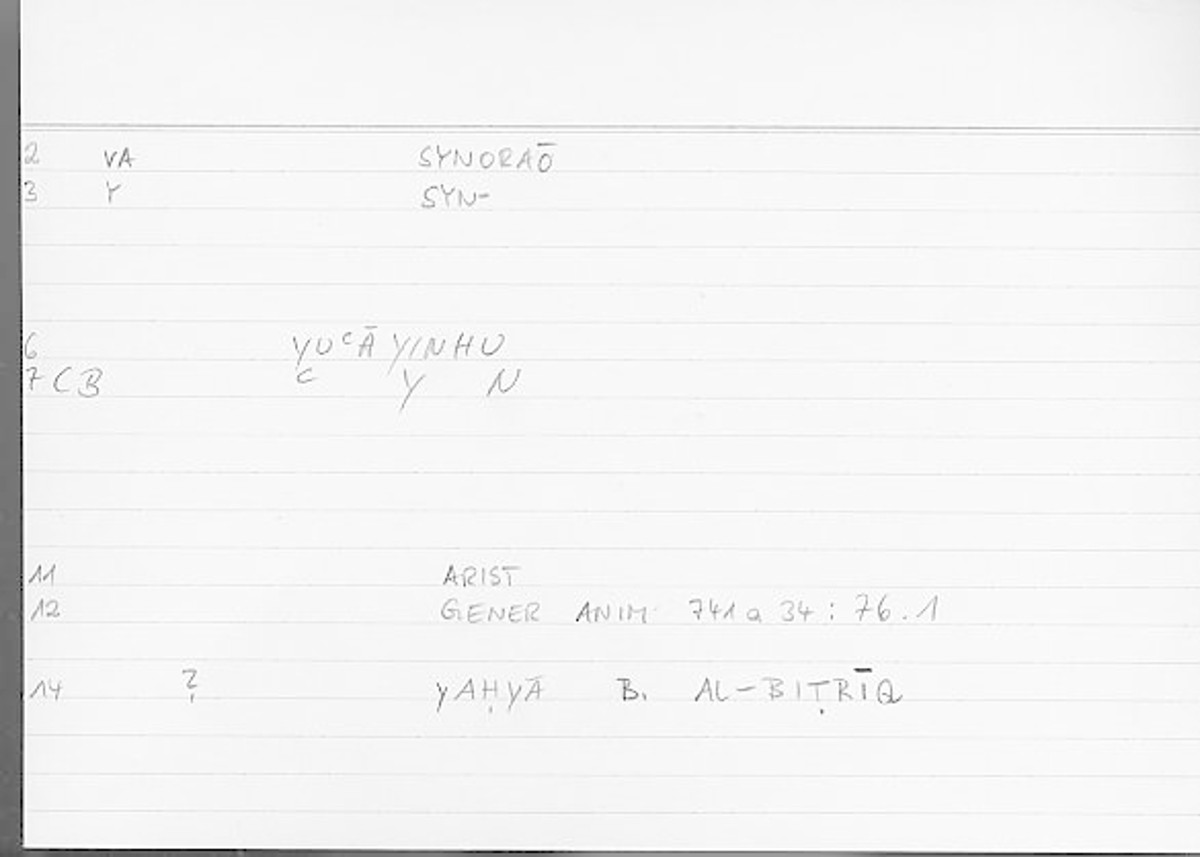 2 VA SYNORAŌ
3 Y SYN-
6 YUᶜĀYINHU
7 CB C Y N
11 ARIST
12 GENER ANIM 741 a 34 : 76.1
14 ? YAḤYĀ B. AL-BIṬRĪQ